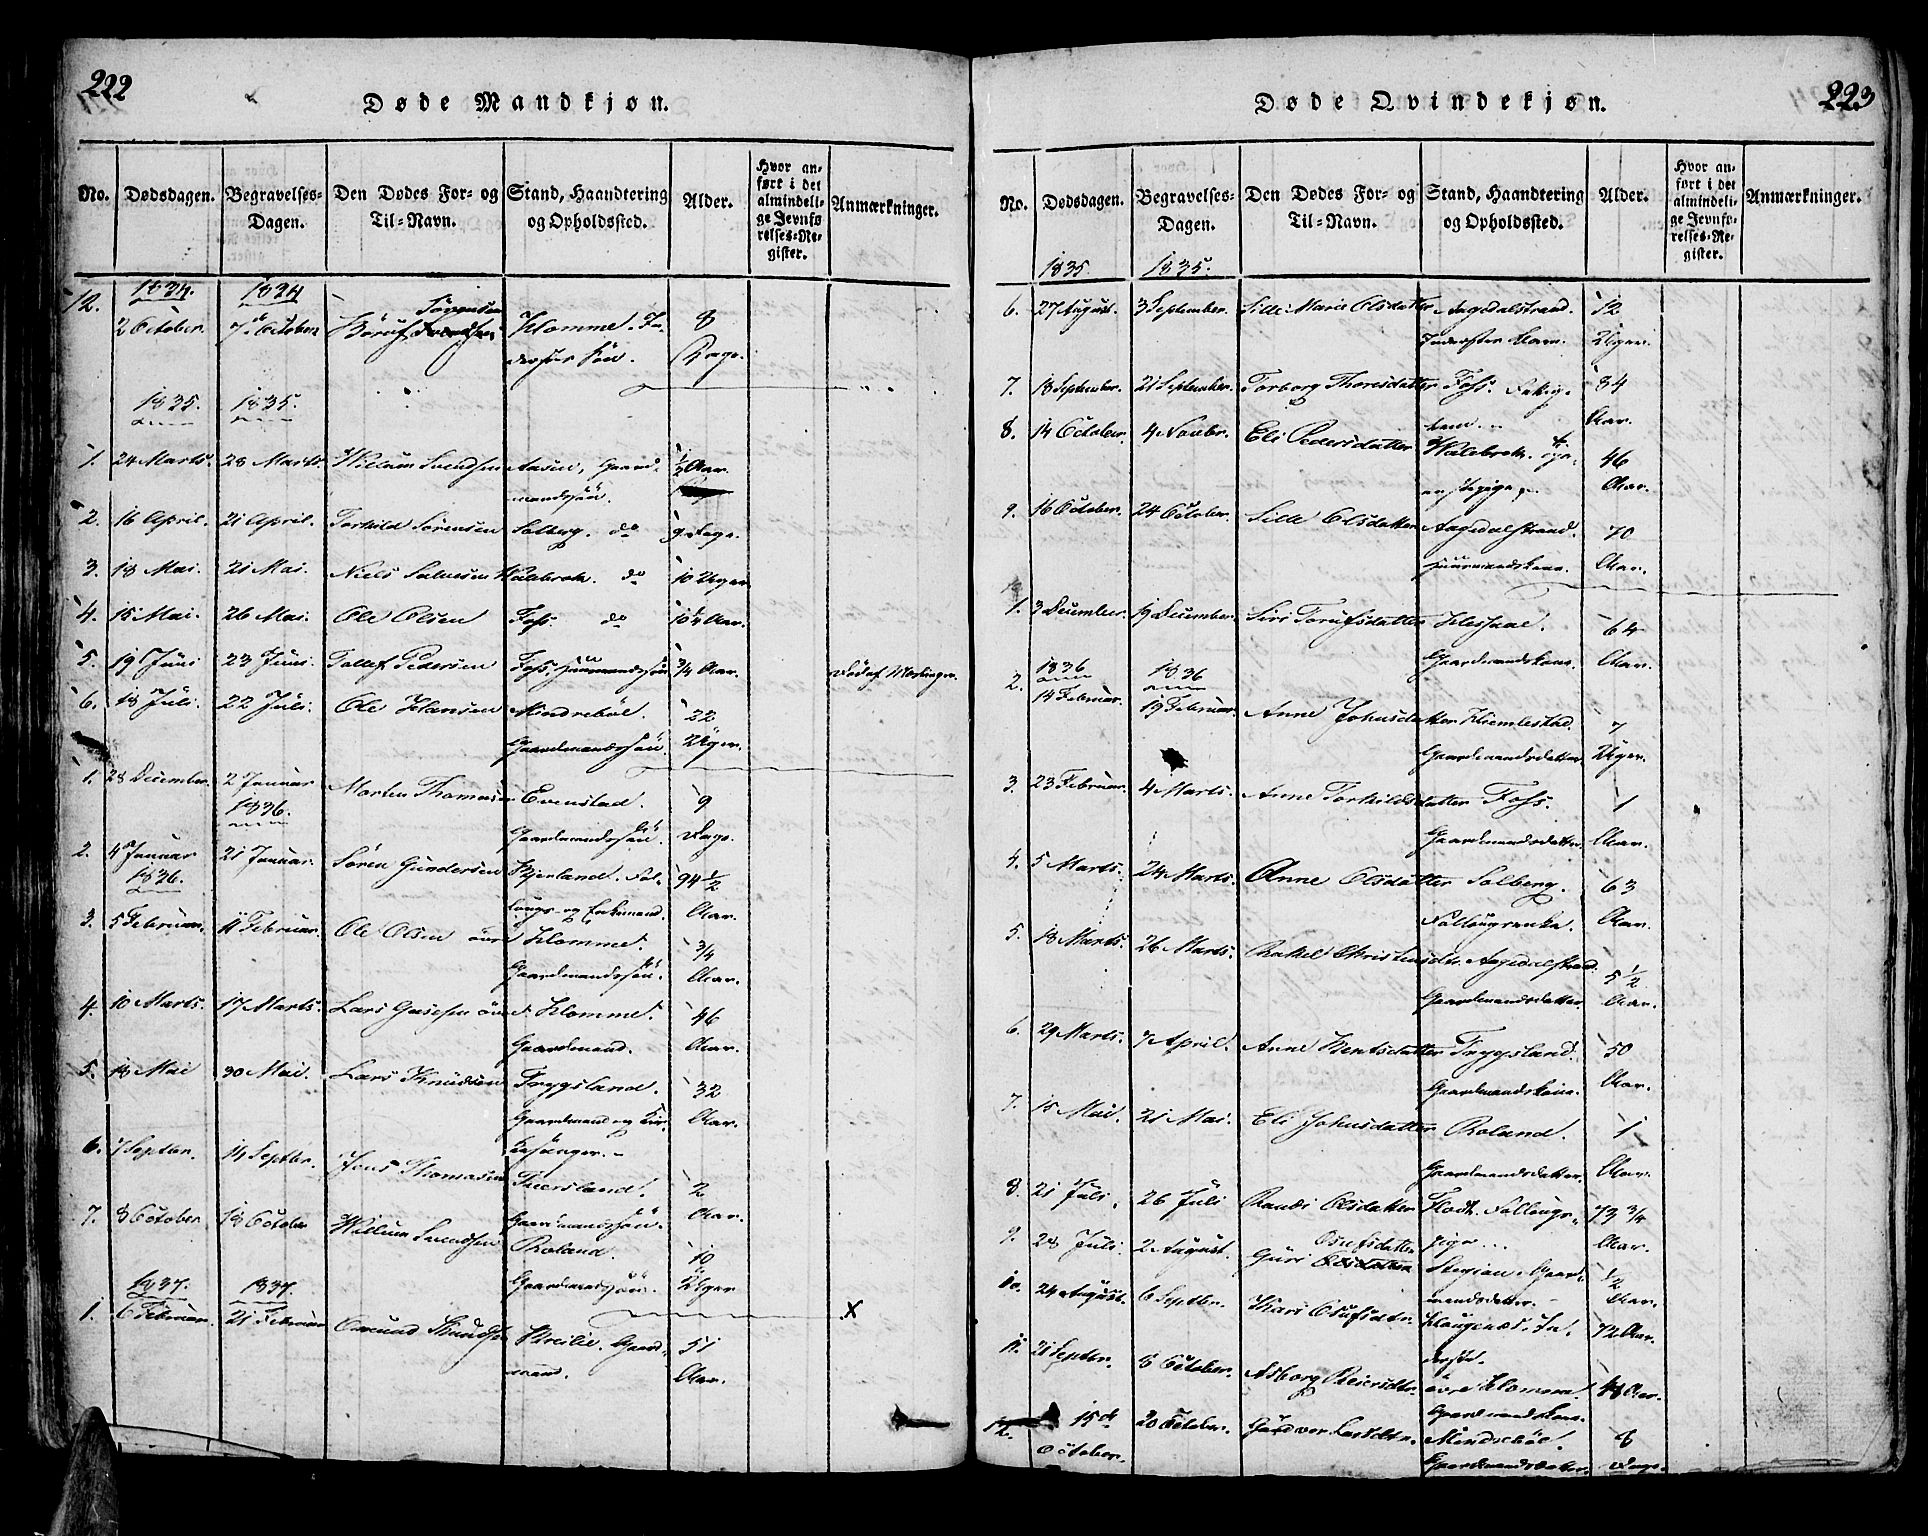 222
Døde Mandkjøn.
No. Dødsdagen. Begravelses-Dagen. Den Dødes For- og Til-Navn. Stand, Haandtering og Opholdssted. Alder. Hvor anført i det almindelige Jevnførelses-Register. Anmærkninger.
1834. 1834
12. 2 October. 7de October Sörensen
8 Dage.
1835. 1835.
1. 24 Marts. 28 Marts. Willum Svendsen Aasen, Gaard- 1/2 Aar.
mandssön.
2. 16 April. 21 April. Torkild Sörensen Solberg. do 9 Dage.
3. 18 Mai. 21 Mai. Niels Salvesen Walebrok. do 10 Uger
4. 15 Mai. 26 Mai. Ole Olsen Foss. do 10 1/4 Aar.
5. 19 Juni 23 Juni. Tollef Pedersen Foss. Huusmandssön 3/4 Aar. Död af Meslinger.
6. 18 Juli. 22 Juli. Ole Hansen Mindreböe. 22
Gaardmandssön. Uger.
1. 28 December. 2 Januar Morten Thomassen Evenstad. 9
1836. Gaardmandssön. Dage.
2. 4 Januar 21 Januar. Sören Gundersen Kjerland. Fol- 94 1/2
1836. laugs- og Enkemand. Aar.
3. 5 Februar. 11 Februar. Ole Olsen övre Homme. 3/4
Gaardmandssön. Aar.
4. 10 Marts. 17 Marts. Lars övre Homme. 46
Gaardmand. Aar.
5. 18 Mai 30 Mai. Lars Knudsen Trygsland. 32
Gaardmand og Kir- Aar.
kesanger.
6. 7 Septbr. 14 Septbr. Jens Thomassen 2
Gaardmandssön. Aar.
7. 8 October 18 October Willum Svendsen Roland. 10
Gaardmandssön. Uger
1837. 1837.
1. 6 Februar. 21 Februar Gaard- 51 X
mand. Aar.
223
Døde Qvindekjøn.
No. Dødsdagen. Begravelses-Dagen. Den Dødes For- og Til-Navn. Stand, Haandtering og Opholdssted. Alder. Hvor anført i det almindelige Jevnførelses-Register. Anmærkninger.
1835 1835.
6. 27 August. 3 September. Sille Marie Olsdatter Aagedalstrand. 12
Inderster Barn. Uger.
7. 18 September. 21 September. Torborg Thoresdatter Foss. 84
Aar.
8. 14 October. 4 Novbr. Eli Pedersdatter Walebrok. 46
Aar.
9. 16 October. 24 October. Sille Olsdatter Aagedalstrand. 70
Huusmandskone. Aar.
1. 3 December. 19 December. Siri Torufsdatter Hessaae. 64
Gaardmandskone. Aar.
1836 1836
2. 14 Februar. 19 Februar. Anne Johnsdatter 7
Gaardmandsdatter Uger.
3. 23 Februar. 4 Marts. Anne Torkildsdatter Foss. 1
Gaardmandsdatter. Aar.
4. 5 Marts. 24 Marts. Anne Olsdatter Solberg. 63
Follaugsenke. Aar.
5. 18 Marts. 26 Marts. Rakel Christensdtr. Aagedalstrand. 5 1/2
Gaardmandsdatter. Aar.
6. 29 Marts. 7 April. Anne Berntsdatter Trygsland. 50
Gaardmandskone. Aar.
7. 15 Mai. 21 Mai. Eli Johnsdatter Roland. 1
Gaardmandsdatter. Aar.
8. 21 Juli. 26 Juli Randi Olsdatter Follaugs- 73 3/4
pige. Aar.
9. 28 Juli. 2 August. Guri Osufsdatter Stegien. Gaard- 1/2
mandsdatter. Aar.
10. 24 August. 6 Septbr. Kari Osufsdtr. Haugenæs. In- 72 Aar.
derste.
11. 21 Septbr. 8 October. Asborg Reiersdtr. övre Homme. 48 Aar.
Gaardmandskone.
12. 15de October. 20 October. Gundvor Mindreböe. 8
Gaardmandsdatter. Dage.